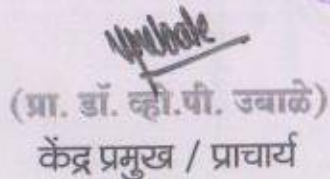 (प्रा. डॉ. व्ही.पी. उबाळे)
केंद्र प्रमुख / प्राचार्य